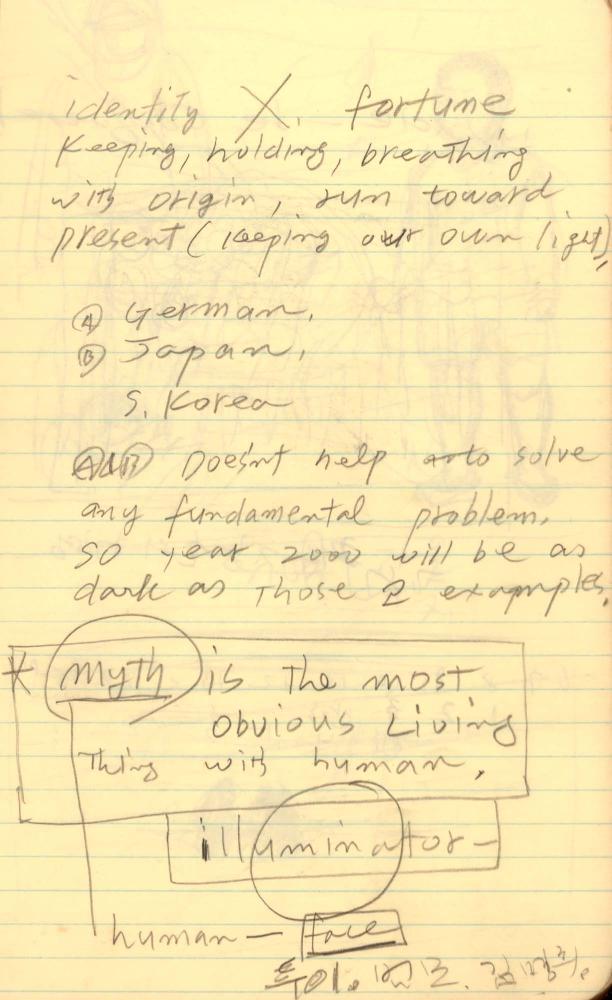 identity X. fortune
Keeping, holding, breathing
with origin, run toward
present ( keeping our own light),
Ⓐ German.
Ⓑ Japan.
S. Korea
Ⓐ&Ⓑ Doesn't help to solve
any fundamental problem.
so year 2000 will be as
dark as those 2 examples.
* myth is the most
obvious Living
Thing with human.
illuminator-
human - face